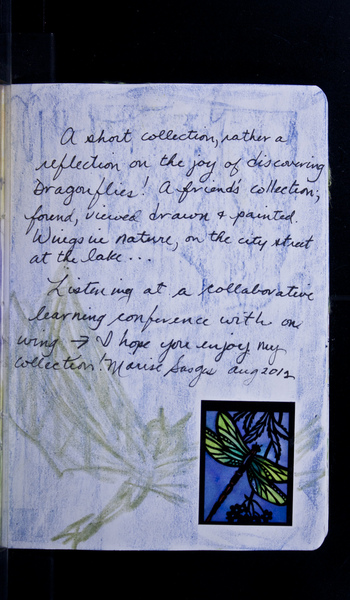 A short collection, rather a
reflection on the joy of discovering
Dragonflies! A friend's collection;
found, viewed drawn & painted.
Wings in nature, on the city street
at the lake...
Listening at a collaborative
learning conference with one
wing → I hope you enjoy my
collection! Marise aug 2012